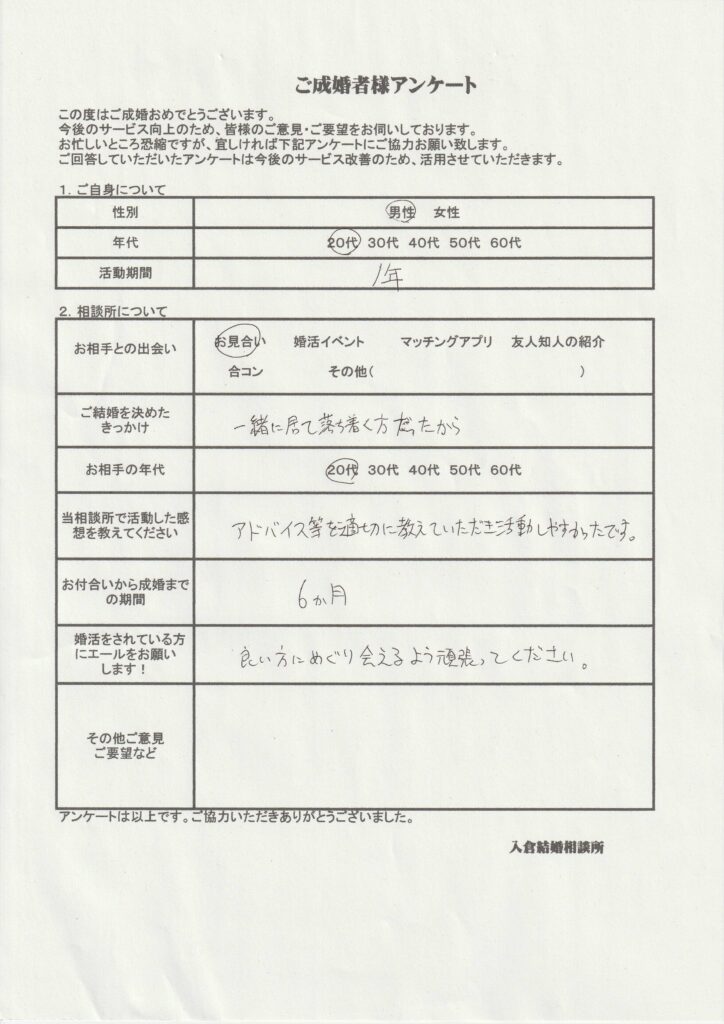 ご成婚者様アンケート
この度はご成婚おめでとうございます。
今後のサービス向上のため、皆様のご意見・ご要望をお伺いしております。
お忙しいところ恐縮ですが、宜しければ下記アンケートにご協力お願い致します。
ご回答していただいたアンケートは今後のサービス改善のため、活用させていただきます。
1. ご自身について
性別 男性 女性
年代 20代 30代 40代 50代 60代
活動期間 1年
2. 相談所について
お相手との出会い お見合い 婚活イベント マッチングアプリ 友人知人の紹介
合コン その他( )
ご結婚を決めた
きっかけ
一緒に居て落ち着く方だったから
お相手の年代 20代 30代 40代 50代 60代
当相談所で活動した感
想を教えてください
アドバイス等を適切に教えていただき活動しやすかったです。
お付合いから成婚まで
の期間
6か月
婚活をされている方
にエールをお願い
します!
良い方にめぐり会えるよう頑張ってください。
その他ご意見
ご要望など
アンケートは以上です。ご協力いただきありがとうございました。
入倉結婚相談所